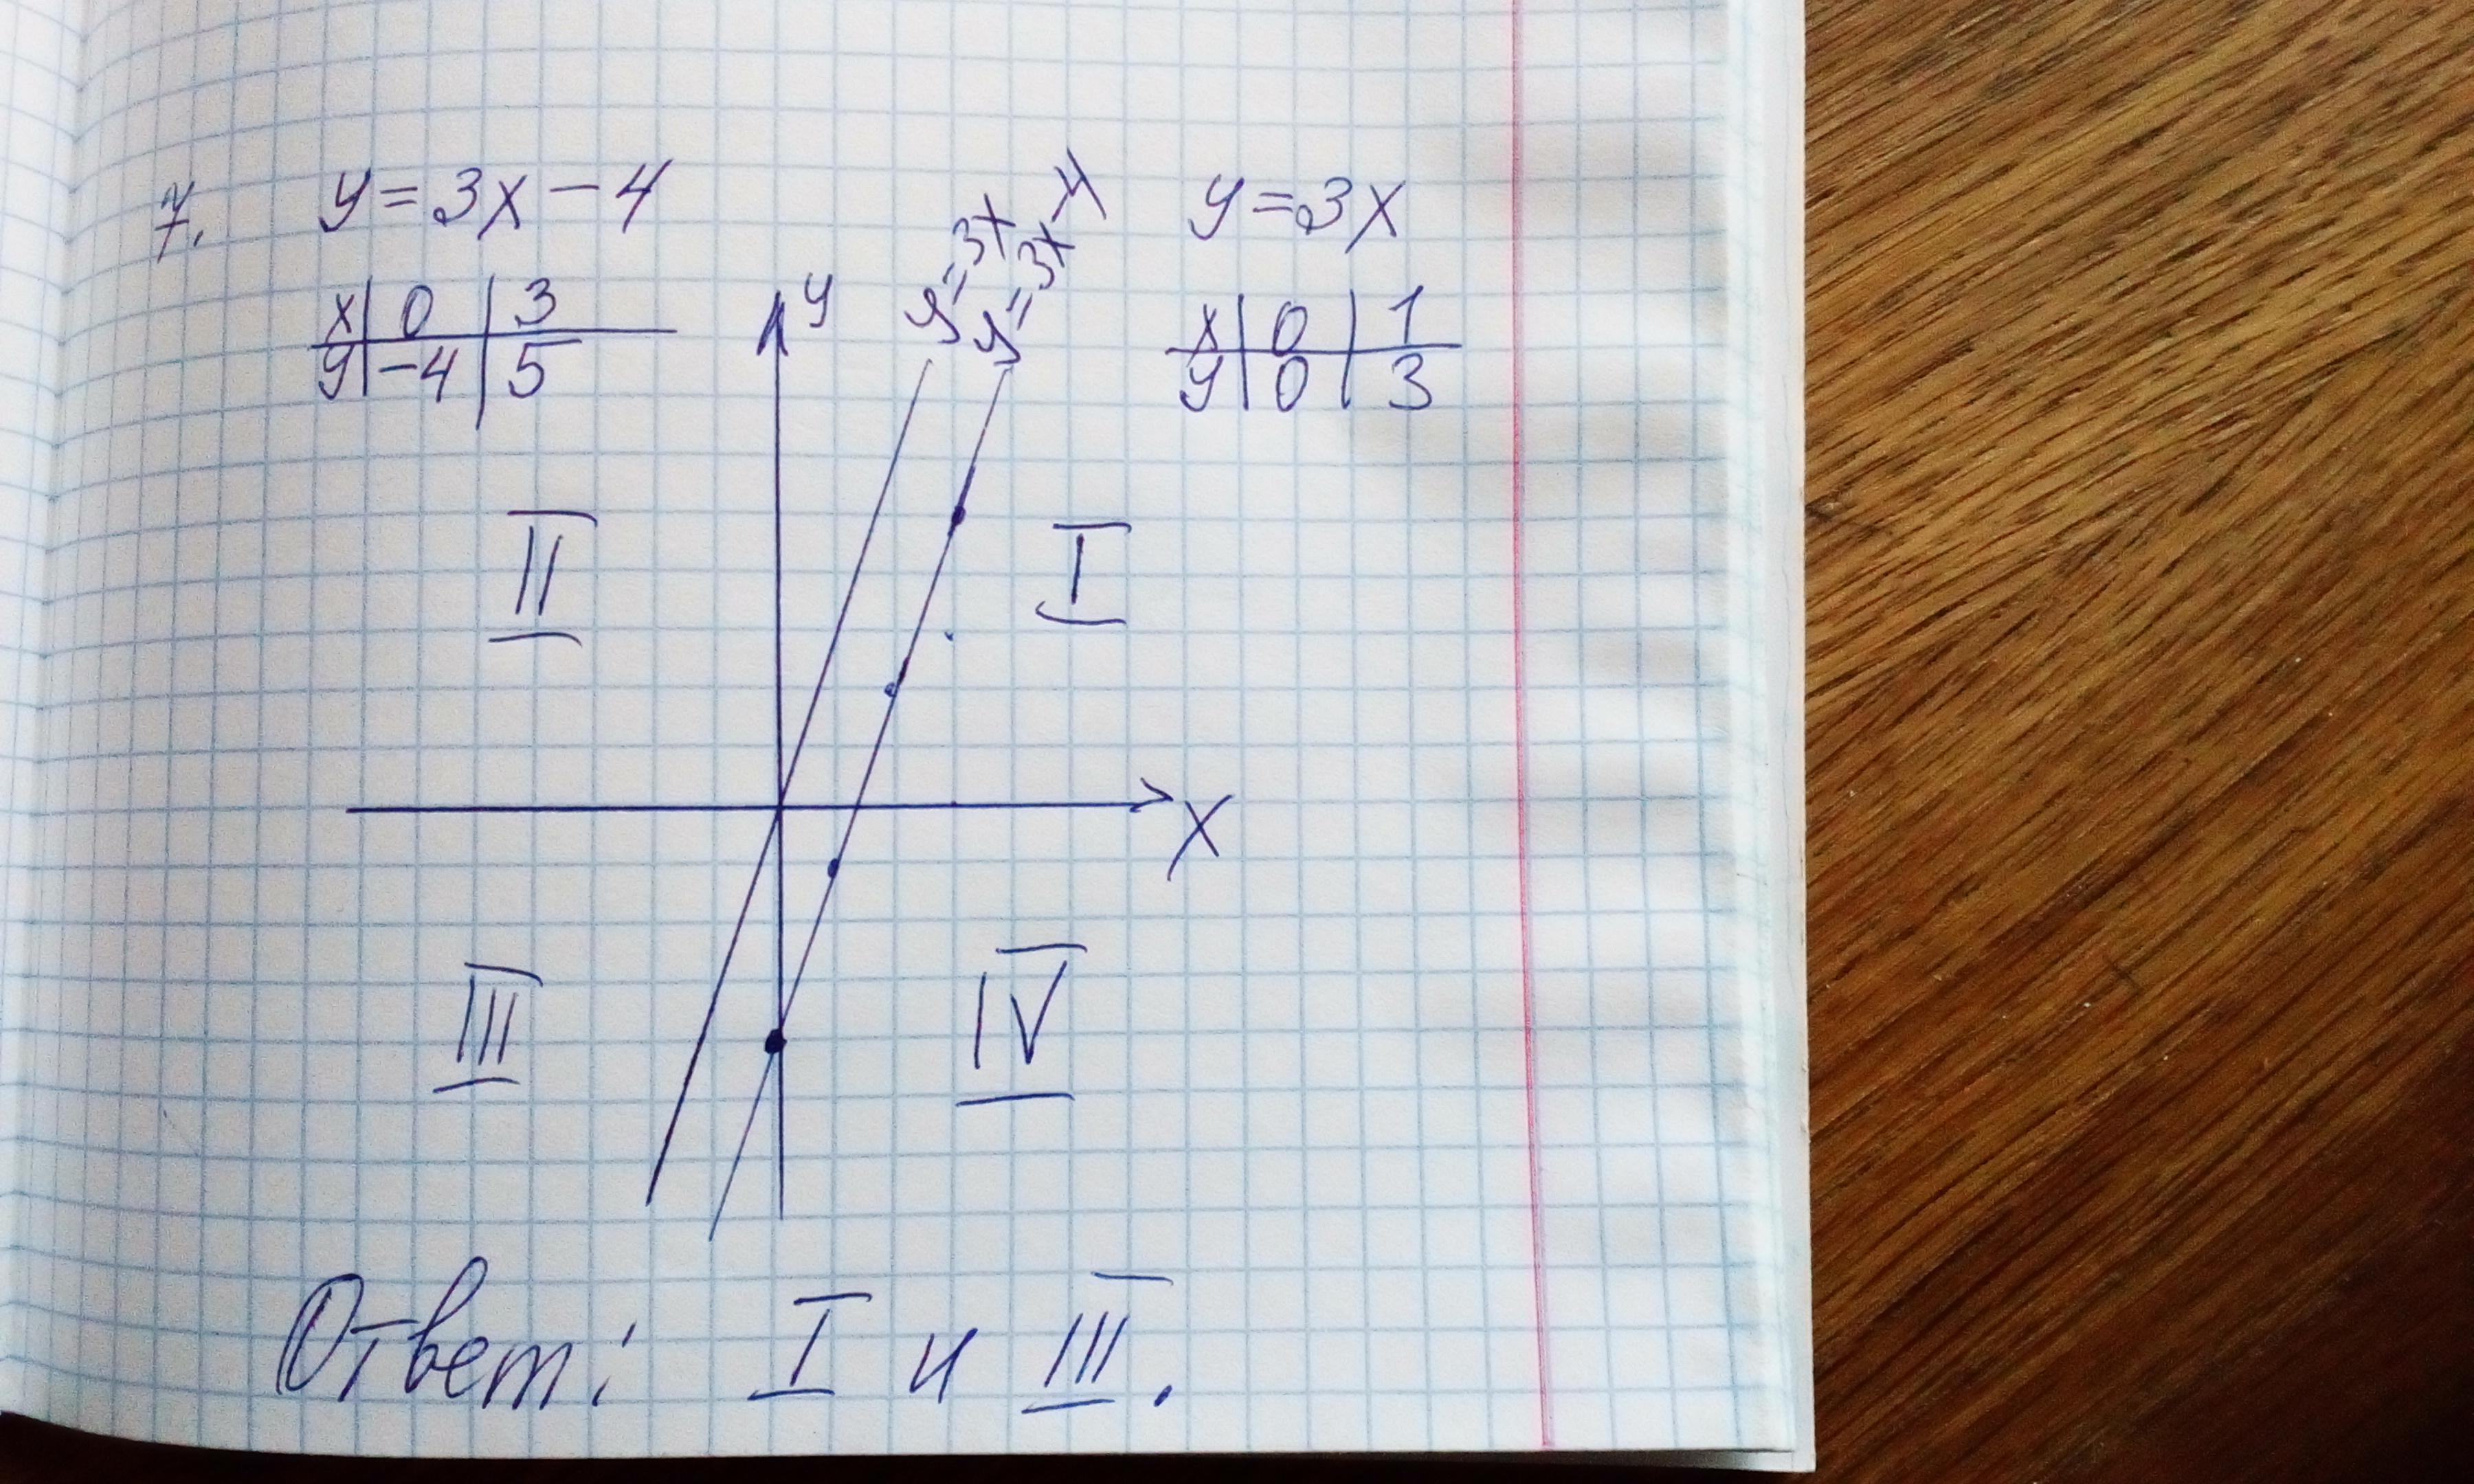 7. y = 3x - 4
x | 0 | 3
y | -4 | 5
y = 3x
x | 0 | 1
y | 0 | 3
y
y = 3x
y = 3x - 4
II
I
x
III
IV
Ответ: I и III.